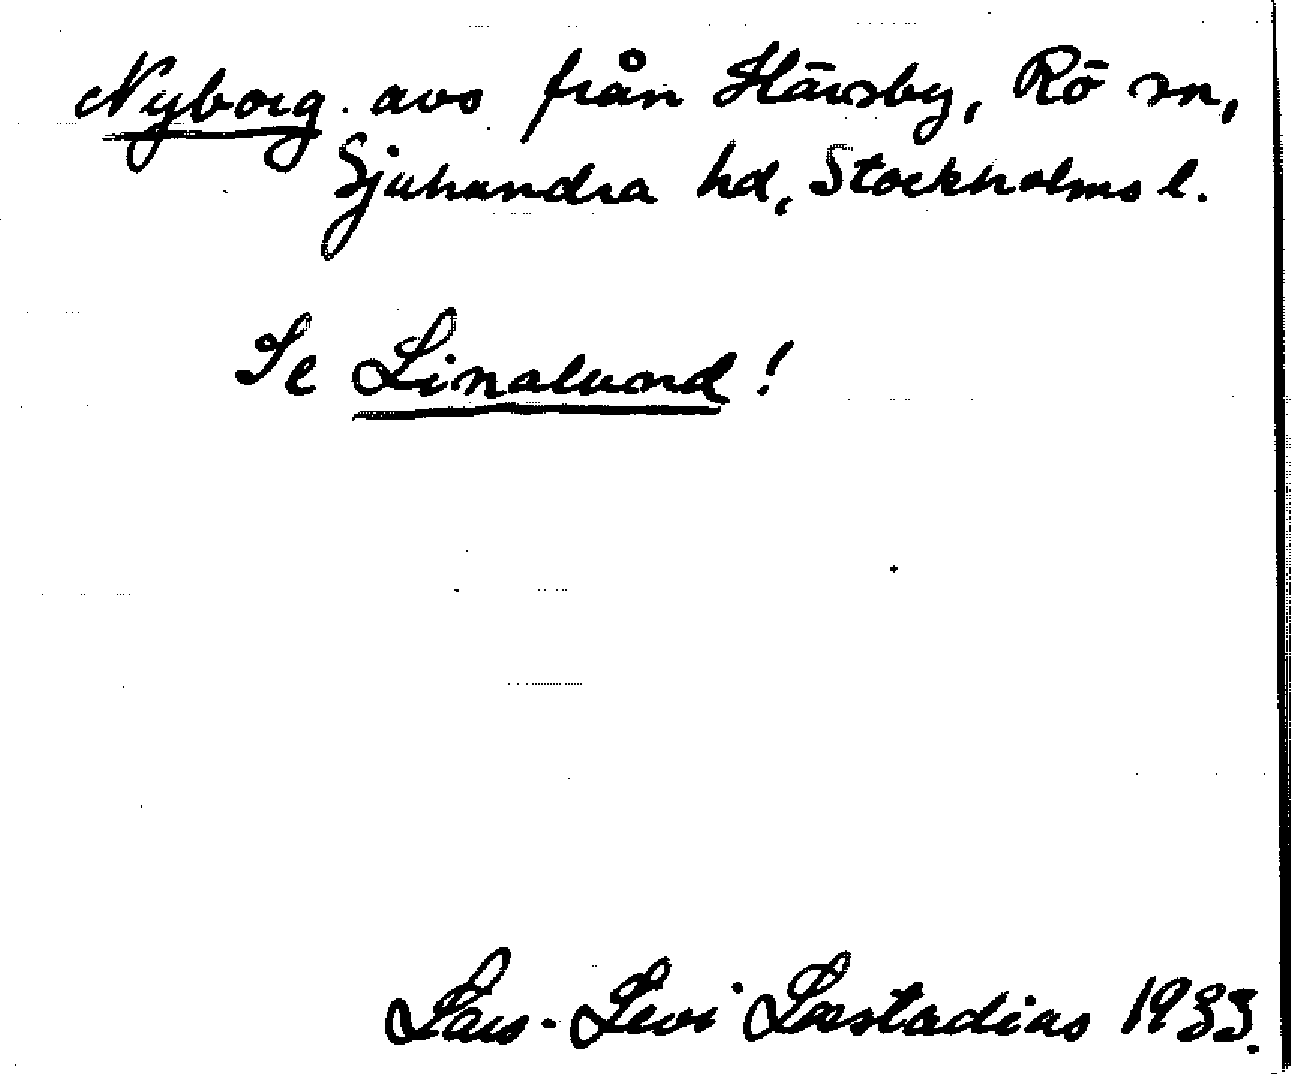 Nyborg. avs från Härsby, Rö sn,
Sjuhundra hd, Stockholms l.
Se Linalund!
Lars-Levi Læstadius 1933.